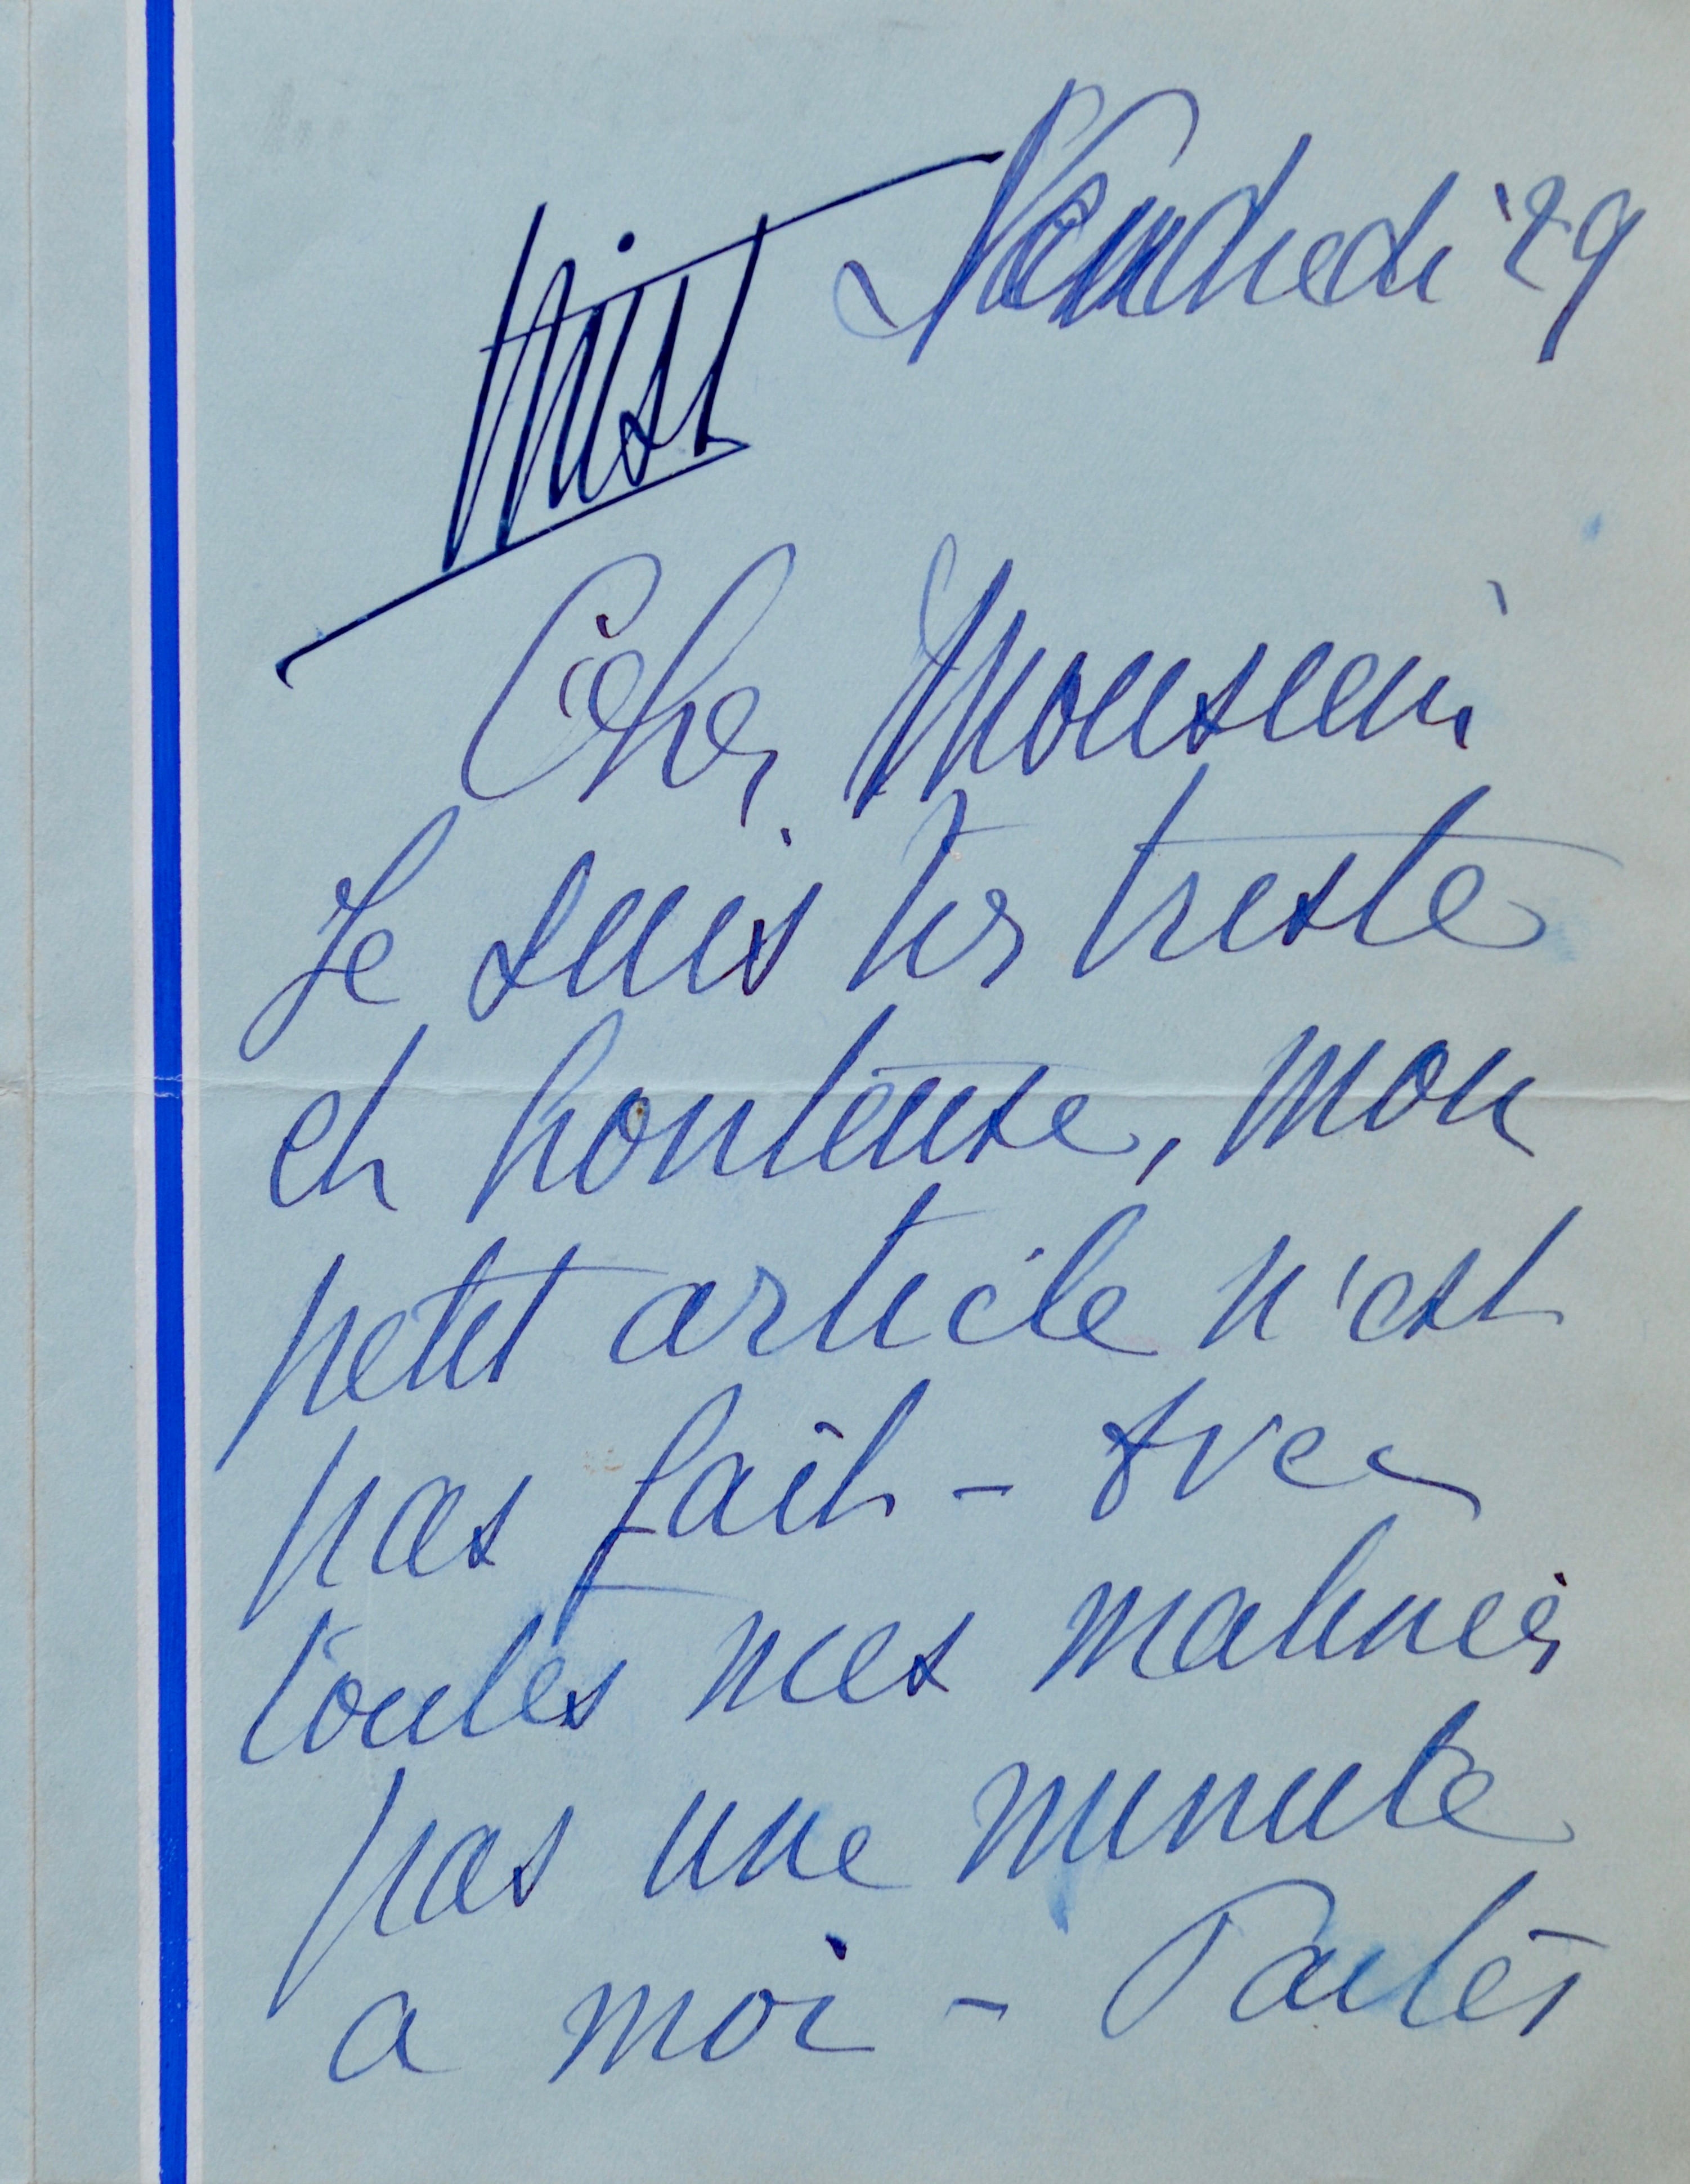 Vendredi 29
Mist
Cher Monsieur
Je suis très triste
et honteuse, mon
petit article n'est
pas fait - Avec
toutes mes matinées
pas une minute
a moi -